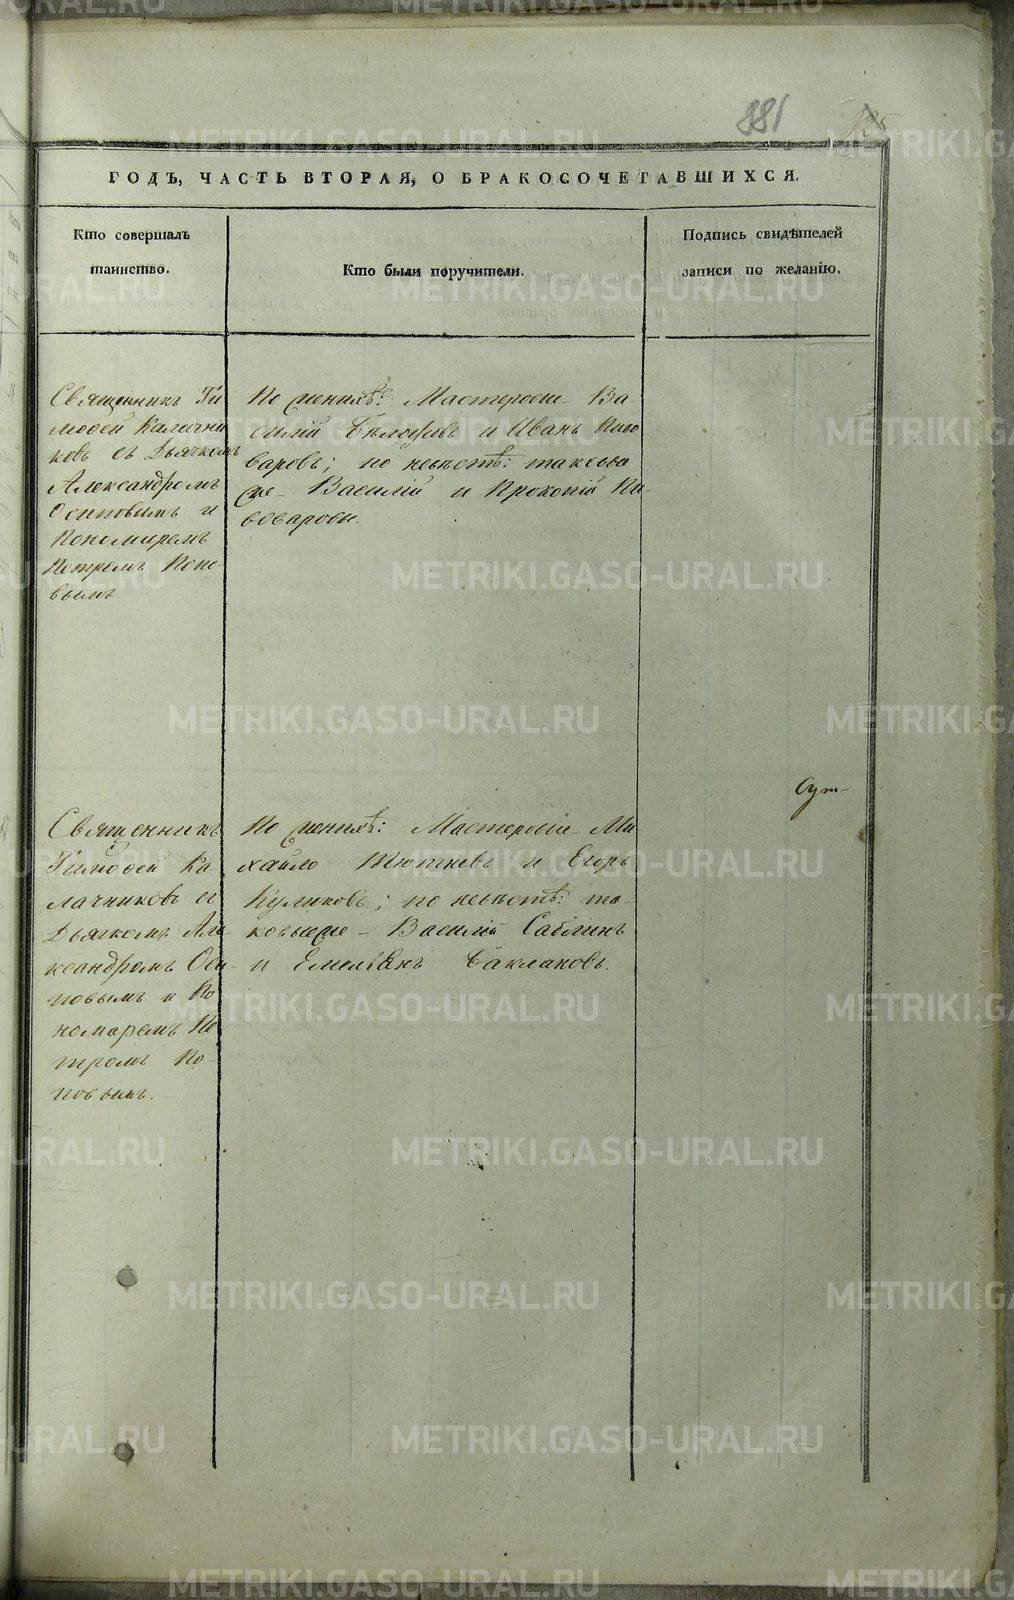 881
125
ГОДЪ, ЧАСТЬ ВТОРАЯ, О БРАКОСОЧЕТАВШИХСЯ.
Кто совершалъ
таинство.
Кто были поручители.
Подпись свидѣтелей
записи по желанію.
Священникъ Ти
мофей Калачни
ковъ съ Дьячкомъ
Александромъ
Осиповымъ и
Пономаремъ
Петромъ Попо-
вымъ
По женихѣ: Мастеровые Ва-
силій и Иванъ Пиво
варовъ; по невѣстѣ: таковые
же Василій и Прокопій Пи-
воваровы.
Сут-
Священникъ
Тимофей Ка
лачниковъ съ
Дьячкомъ Але-
ксандромъ Оси-
повымъ и По
номаремъ Пе
тромъ По-
повымъ.
По женихѣ: Мастеровые Ми
хайло Тютневъ и Егоръ
Куликовъ; по невѣстѣ: та-
ковые же Василій Саблинъ
и Емельянъ Баклановъ.
METRIKI.GASO-URAL.RU